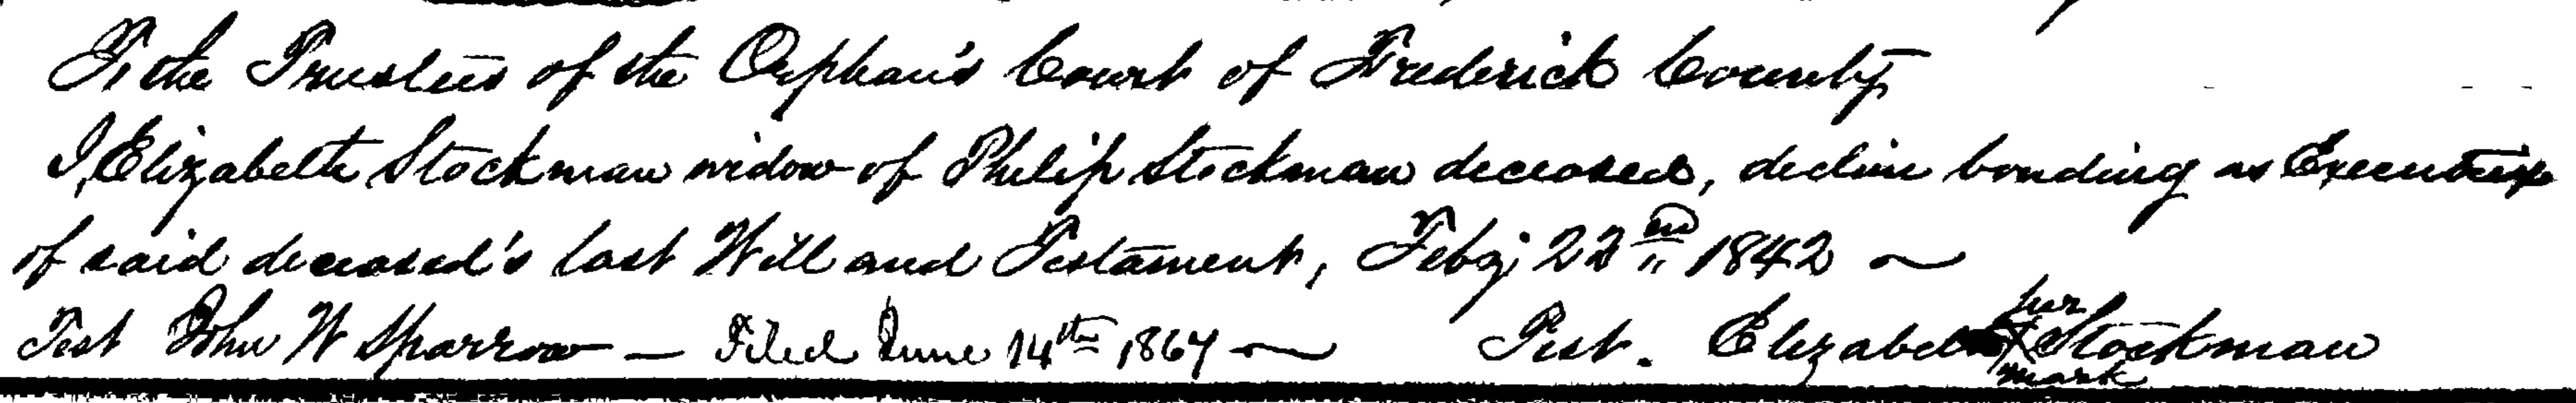 To the Trustees of the Orphan's Court of Frederick County
I, Elizabeth Stockman widow of Philip Stockman deceased, decline bonding as Executrix
of said deceased's last Will and Testament, Feby 22nd 1842
Test John W Sparrow — Filed June 14th 1864 Test. Elizabeth her X mark Stockman